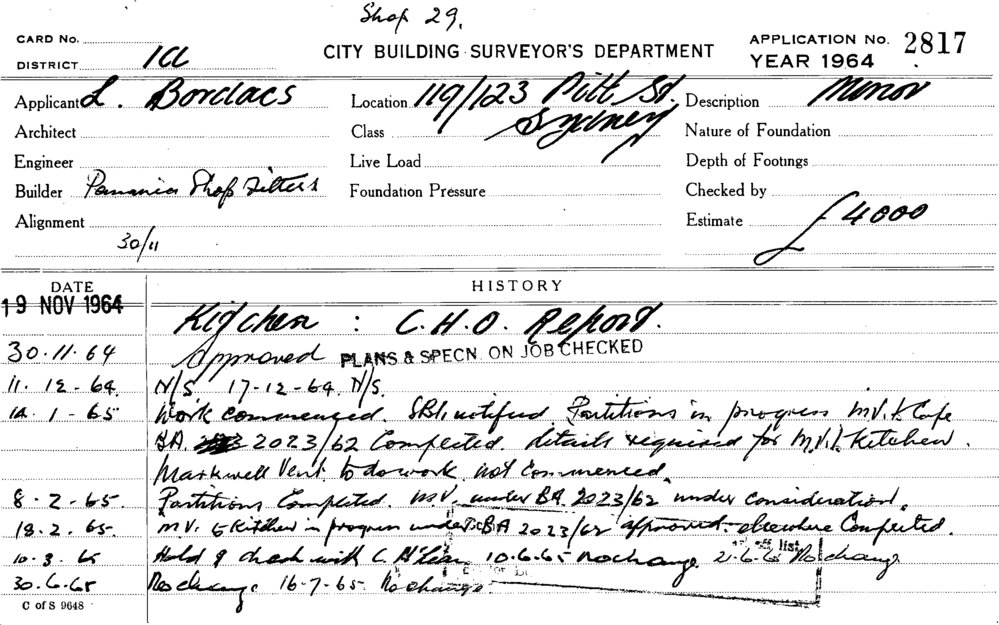 Shop 29.
CARD No.
CITY BUILDING SURVEYOR'S DEPARTMENT
APPLICATION No. 2817
DISTRICT ICL
YEAR 1964
Applicant L. Bordacs
Location 119/123 Pitt St. Sydney
Description Minor
Architect
Class
Nature of Foundation
Engineer
Live Load
Depth of Footings
Builder Panania Shop Fitters
Foundation Pressure
Checked by
Alignment
Estimate £4000
30/11
DATE
HISTORY
19 NOV 1964 Kitchen : C.H.O. Report.
30.11.64 Approved PLANS & SPECN. ON JOB CHECKED
11.12-64. N/S 17-12-64. N/S.
14.1-65 Work commenced. SBI notified Partitions in progress M.V. K Cafe
BA. 2023/62 Completed. details required for M.V. Kitchen.
Markwell Vent. to do work. not Commenced.
8-2-65. Partitions Completed. M.V. under BA. 2023/62 under consideration.
18.2.65. M.V. to Kitchen in progress under BA 2023/62 approved. elsewhere Completed.
10.3.65 Hold & check with C. 10.6.65 No change 21.6.65 No change
30.6.65 No change. 16-7-65. No change.
C of S 9648